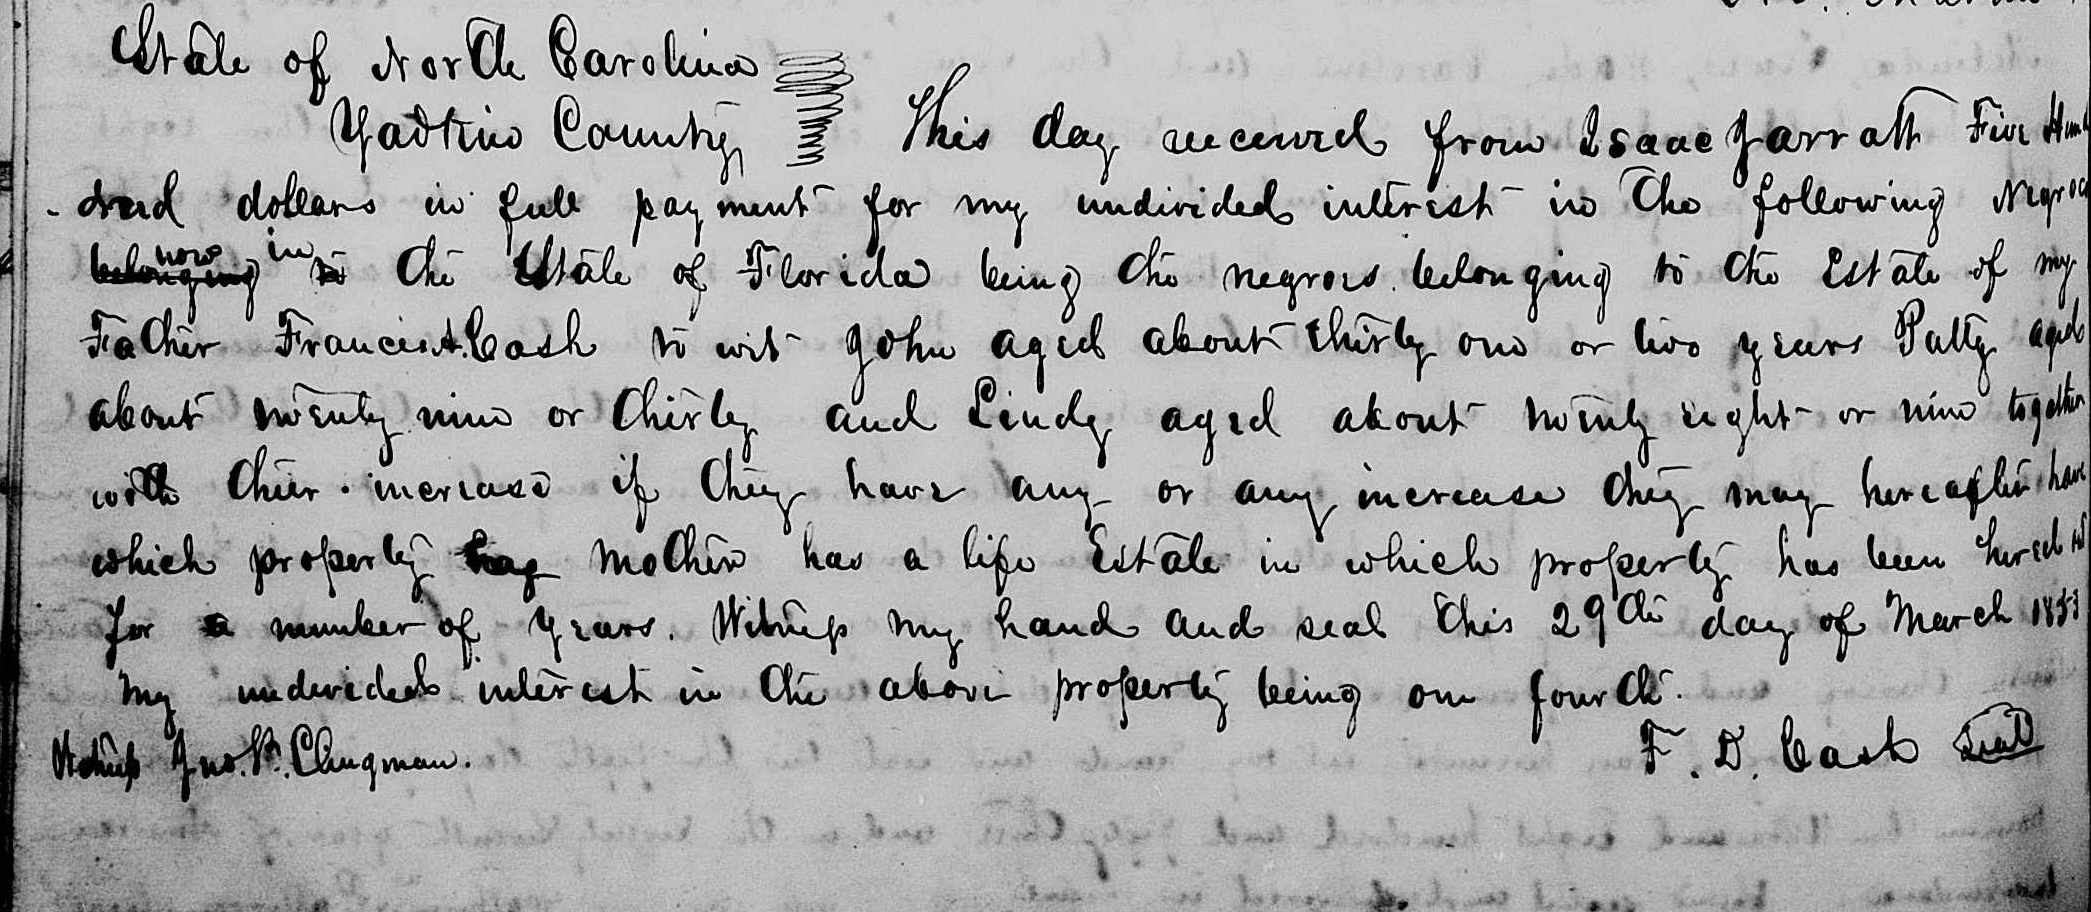 State of North Carolina
Yadkin County This day received from Isaac Jarratt Five Hun
dred dollars in full payment for my undivided interest in the following Negroes
belonging now to in the State of Florida being the negroes belonging to the Estate of my
Father Francis A. Cash to wit John aged about thirty one or two years Patty aged
about twenty nine or thirty and Lindy aged about twenty eight or nine together
with their increase if they have any or any increase they may hereafter have
which property my Mother has a life Estate in which property has been hired out
for a number of years. Witness my hand and seal this 29th day of March 1853
My undivided interest in the above property being one fourth.
Witness Jno. P. Clingman. F. D. Cash Seal